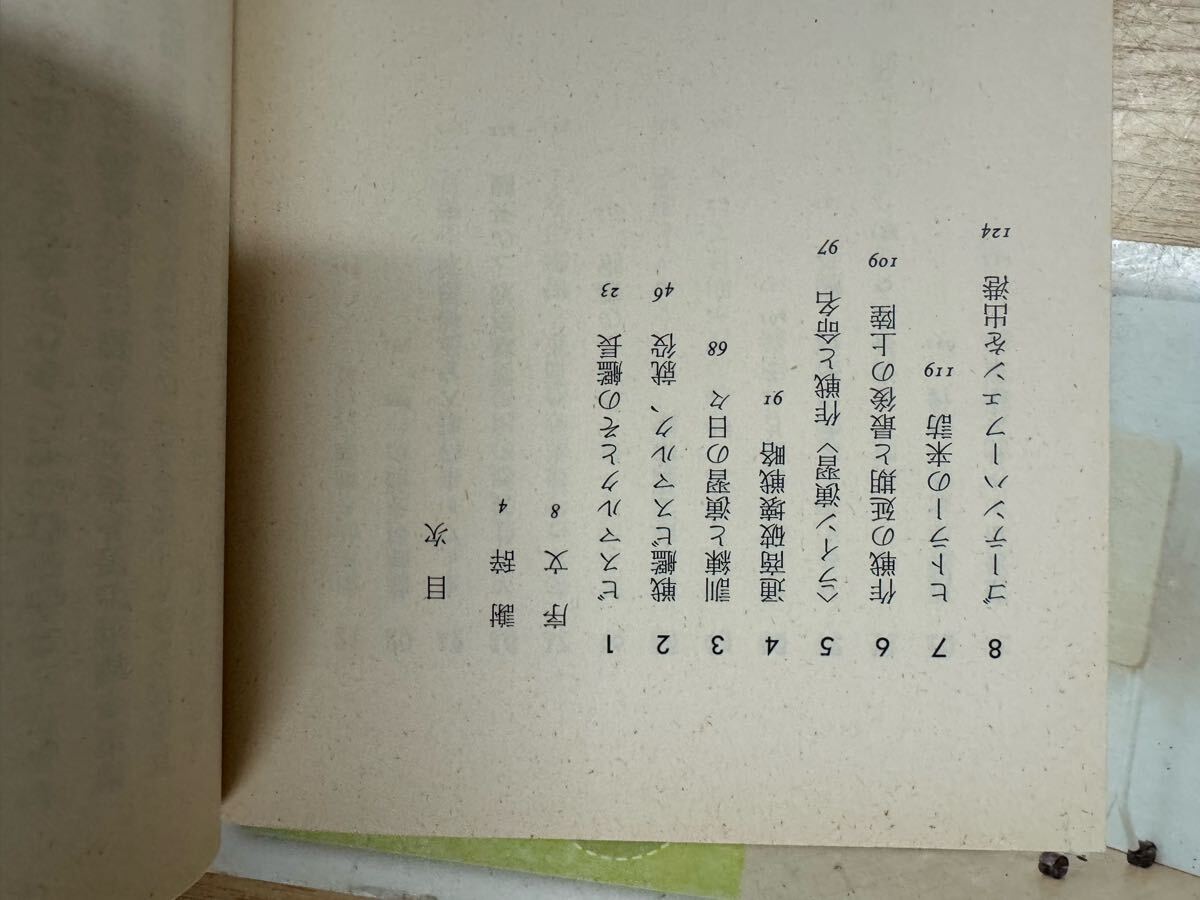 目次
謝辞 4
序文 8
1 ビスマルクとその艦長 23
2 戦艦ビスマルク、就役 46
3 訓練と演習の日々 68
4 通商破壊戦略 91
5 〈ライン演習〉作戦と命名 97
6 作戦の延期と最後の上陸 109
7 ヒトラーの来訪 119
8 ゴーテンハーフェンを出港 124